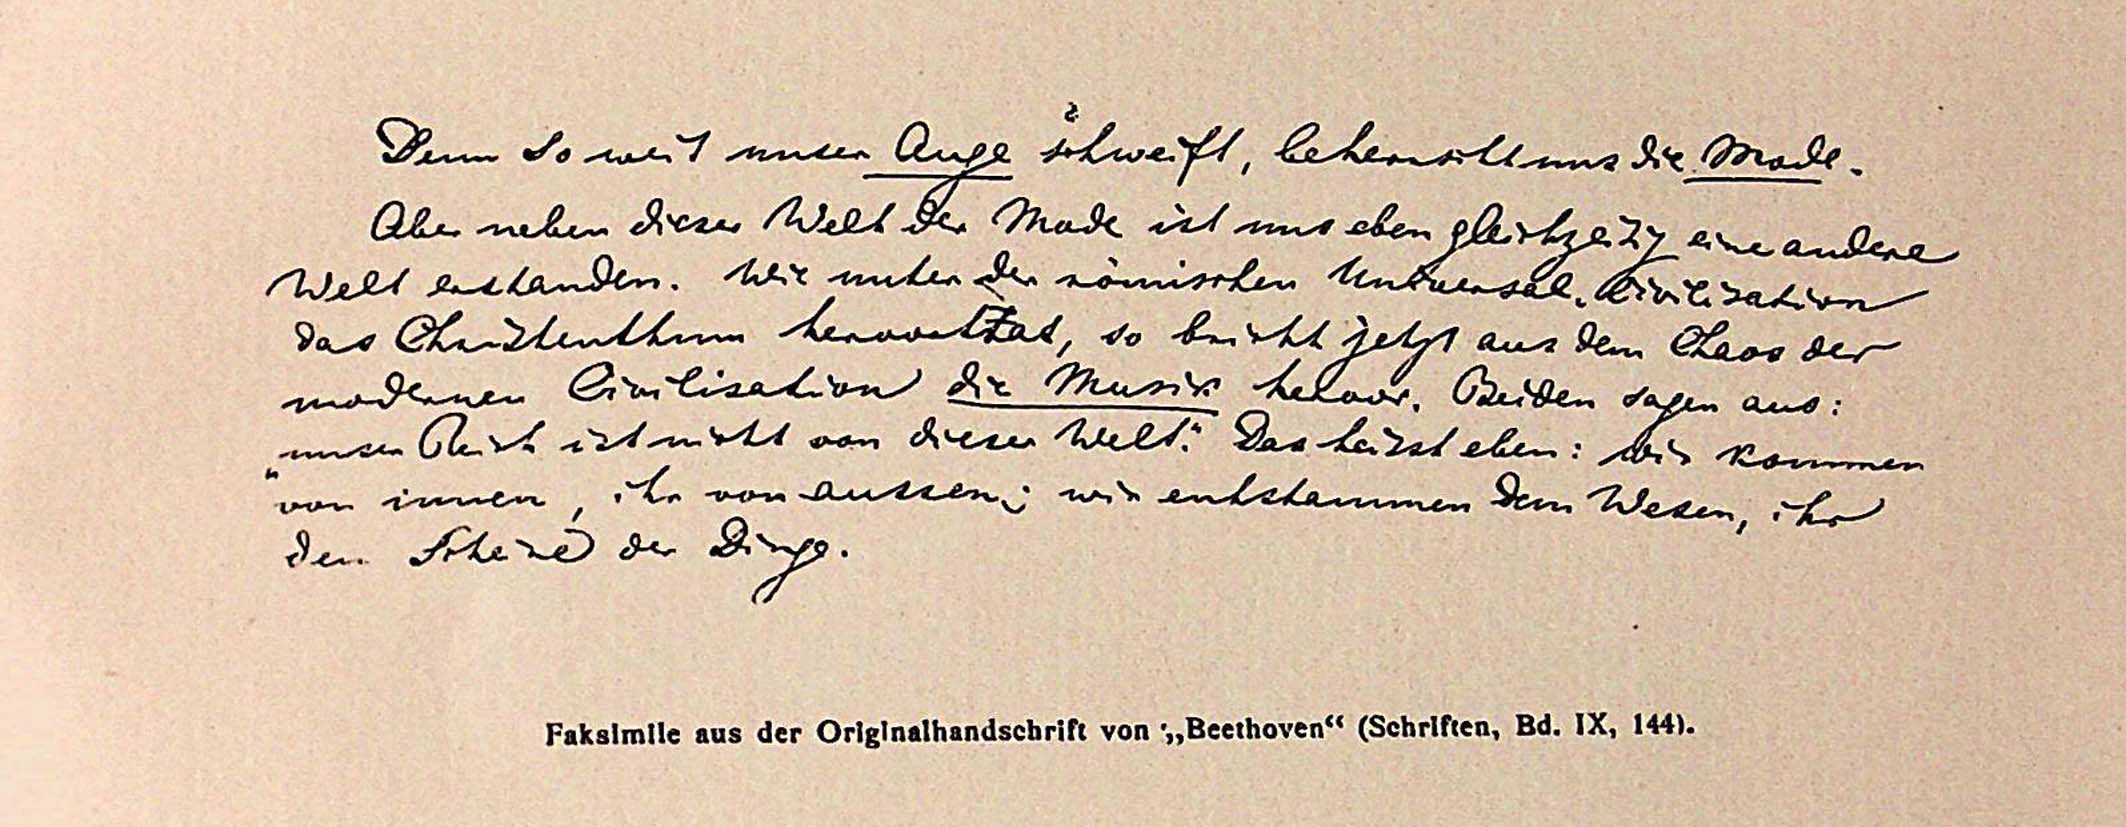 Denn so weit unser Auge schweift, beherrscht uns die Mode.
Aber neben dieser Welt der Mode ist uns eben gleichzeitig eine andere
Welt erstanden. Wie unter der römischen Universal-Civilisation
das Christenthum hervortrat, so bricht jetzt aus dem Chaos der
modernen Civilisation die Musik hervor. Beiden sagen aus:
„unser Reich ist nicht von dieser Welt." Das heisst eben: wir kommen
von innen, ihr von aussen; wir entstammen dem Wesen, ihr
dem Scheine der Dinge.
Faksimile aus der Originalhandschrift von „Beethoven“ (Schriften, Bd. IX, 144).